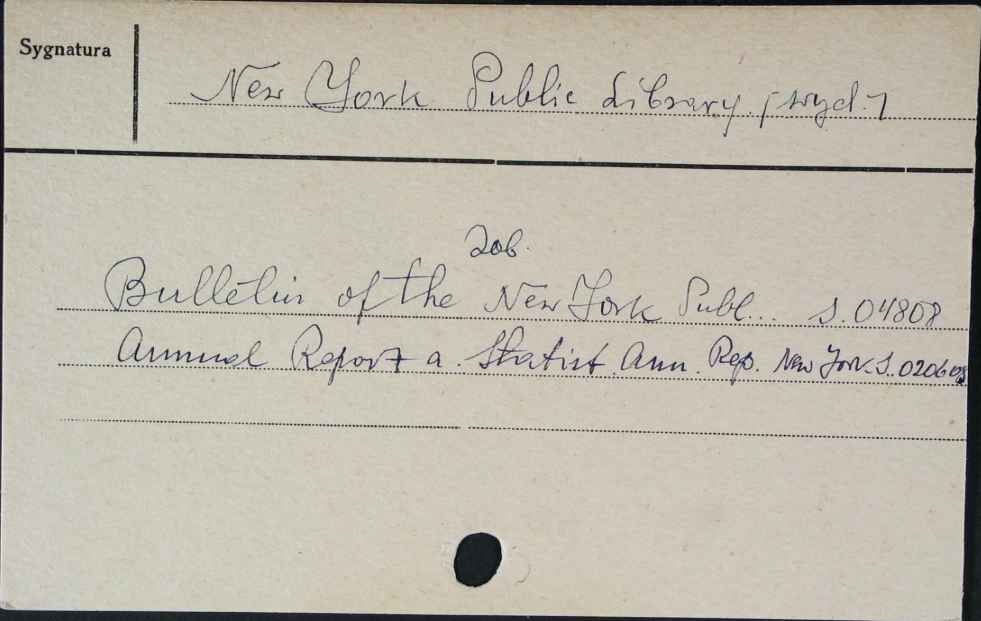 Sygnatura
New York Public Library (wyd.)
Zob.
Bulletin of the New York Publ... S. 04808
Annual Report a. Statist. Ann. Rep. New York. S. 020608